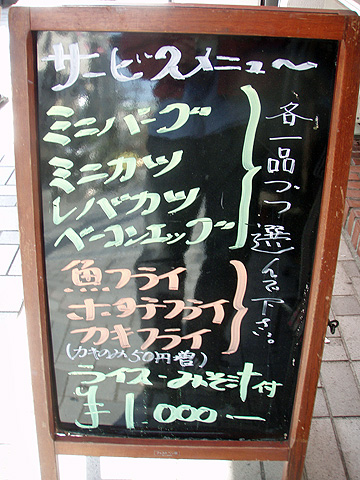 サービスメニュ〜
ミニバーグ
ミニカツ
レバカツ
ベーコンエッグ
魚フライ
ホタテフライ
カキフライ
(カキのみ50円増)
各一品づつ選んで下さい。
ライス・みそ汁付
¥1,000ー